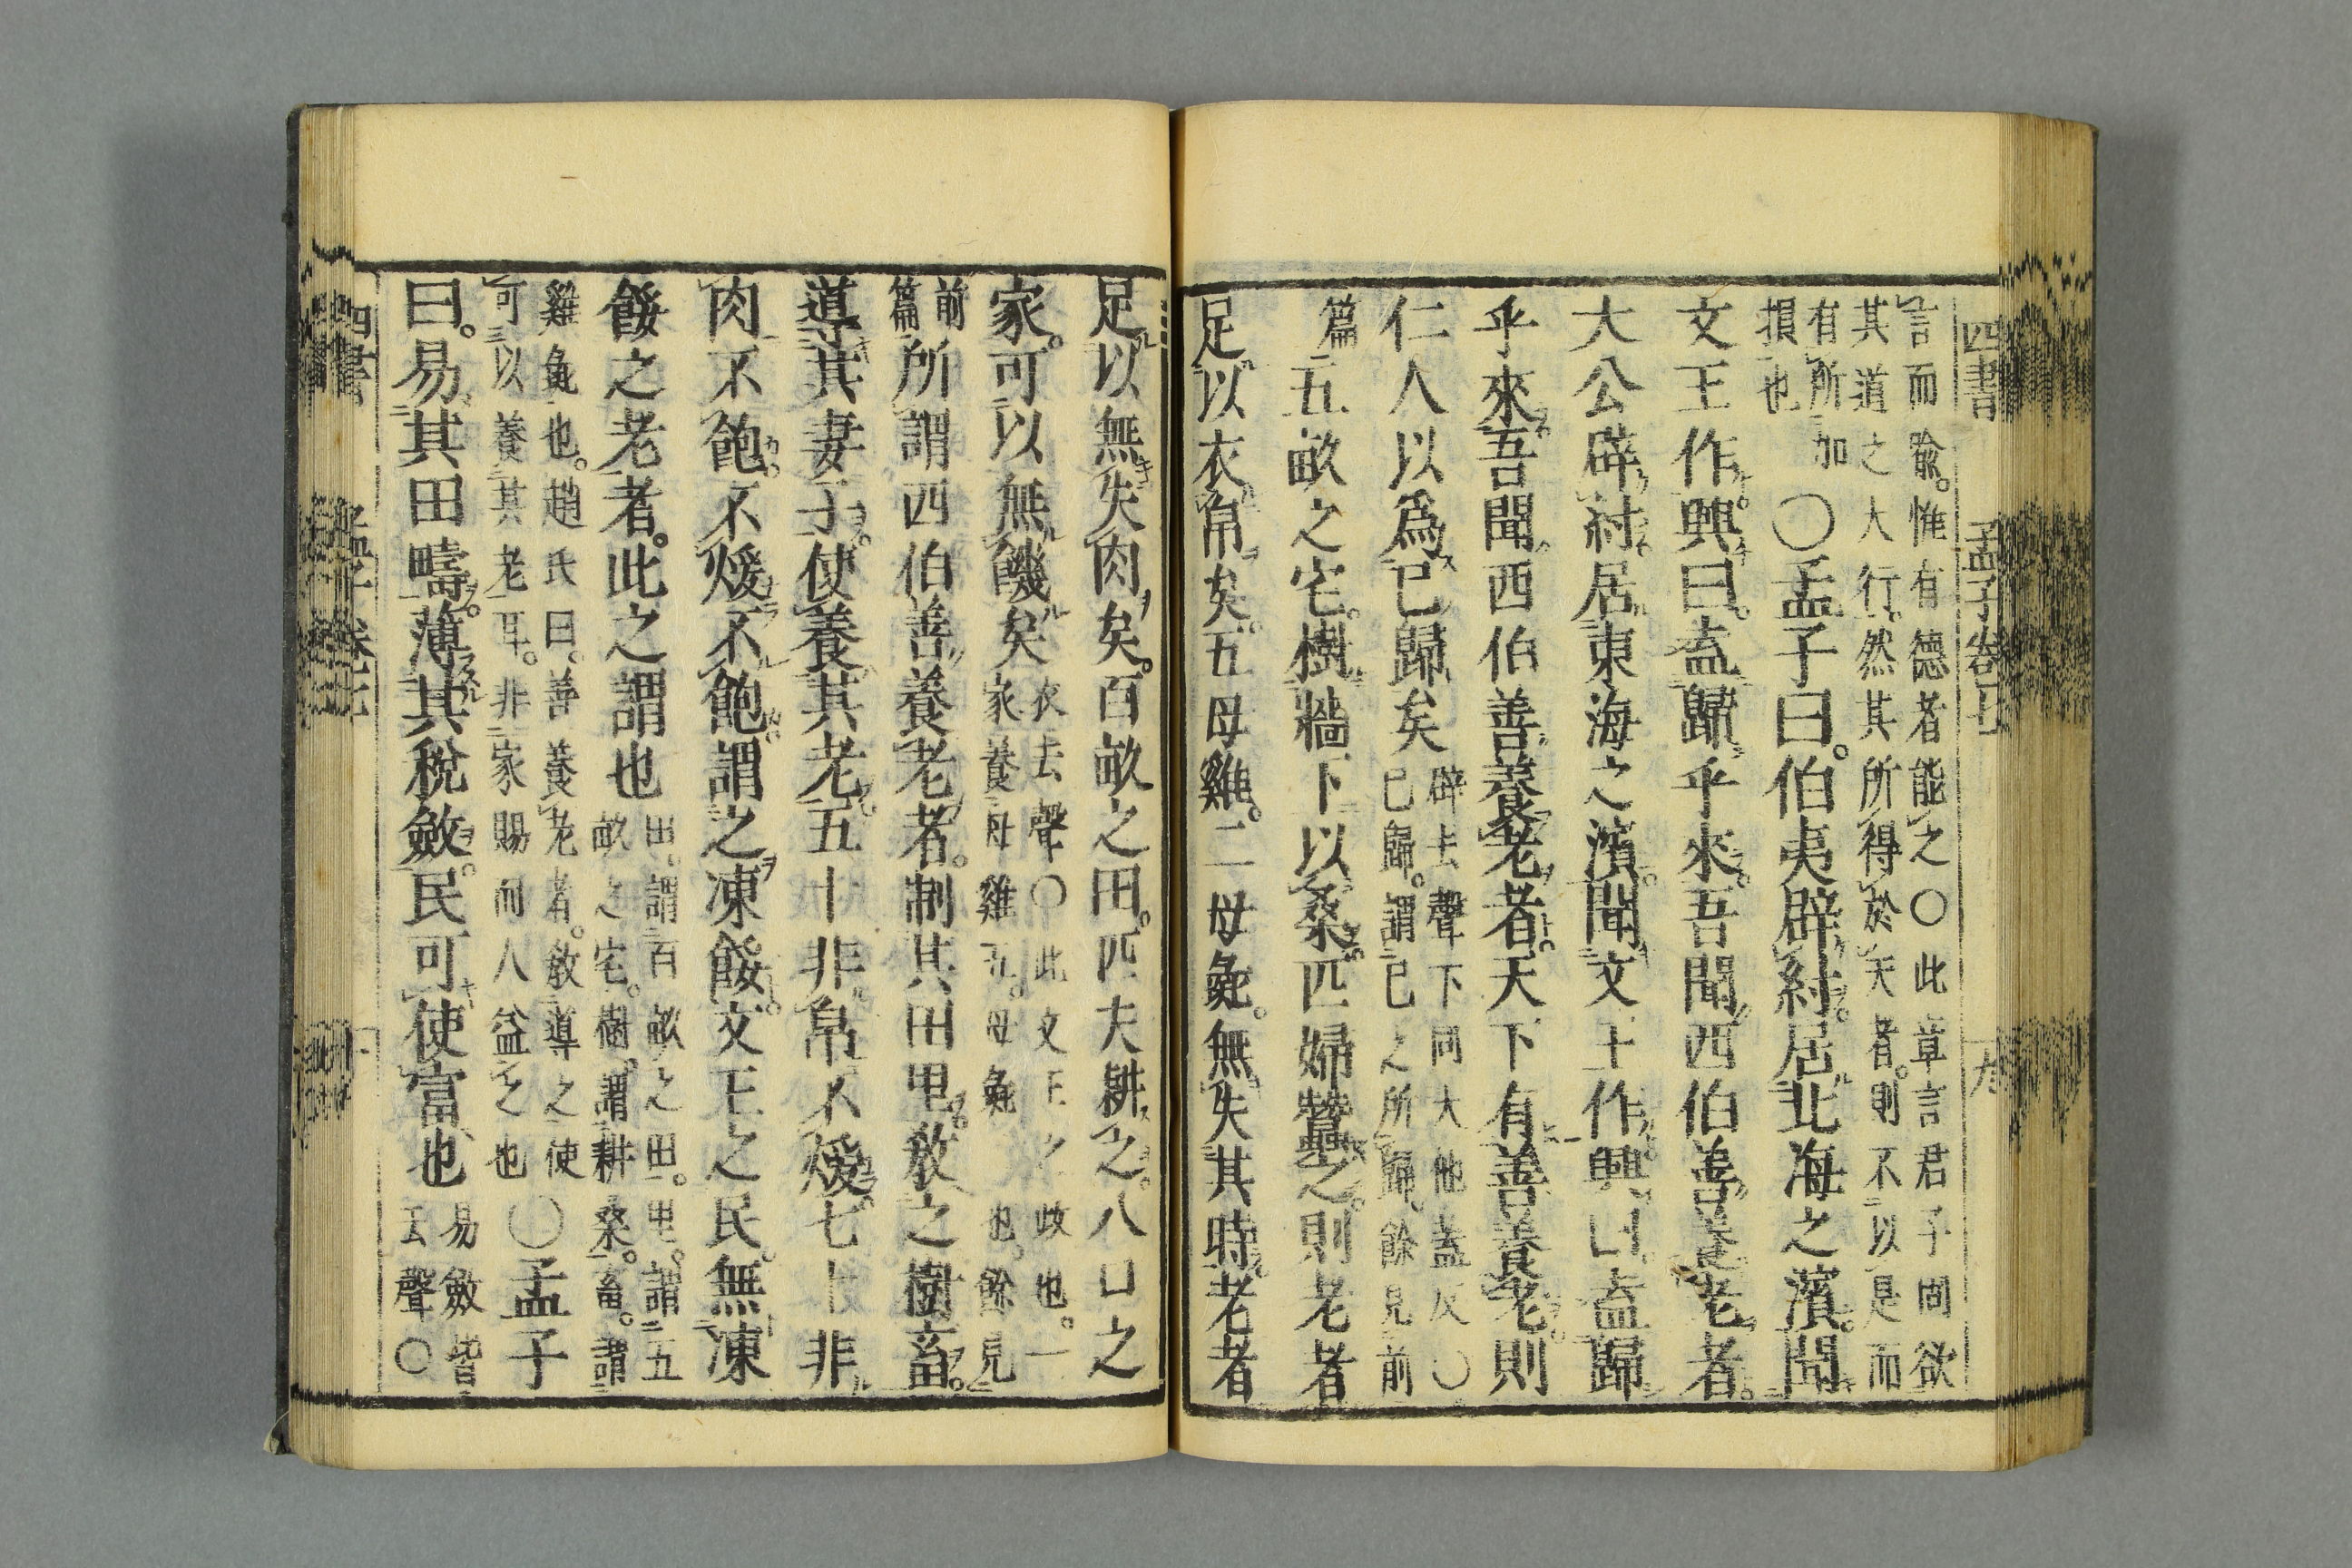 四書 孟子卷七 十九
言而喩。惟有德者能之〇此章言君子固欲
其道之大行。然其所得於天者。則不以是而
有所加
損也
〇孟子曰。伯夷辟紂。居北海之濱。聞
文王作興。曰。盍歸乎來。吾聞西伯善養老者。
大公辟紂。居東海之濱。聞文王作興。曰。盍歸
乎來。吾聞。西伯善養老者。天下有善養老。則
仁人以爲己歸矣
辟去聲下同大他蓋反〇
己歸。謂己之所歸。餘見前
篇
五畝之宅。樹牆下以桑。匹婦蠶之。則老者
足以衣帛矣。五母雞。二母彘。無失其時。老者
足以無失肉矣。百畝之田。匹夫耕之。八口之
家。可以無饑矣
衣去聲〇此文王之政也。一
家養母雞五。母彘二也。餘見
前
篇
所謂西伯善養老者。制其田里。敎之樹畜。
導其妻子。使養其老。五十非帛不煖。七十非
肉不飽。不煖不飽。謂之凍餒。文王之民。無凍
餒之老者。此之謂也
田。謂百畝之田。里。謂五
畝之宅。樹。謂耕桑。畜。謂
雞彘也。趙氏曰。善養老者。敎導之使
可以養其老耳。非家賜而人益之也
〇孟子
曰。易其田疇。薄其稅斂。民可使富也
易斂皆
去聲〇